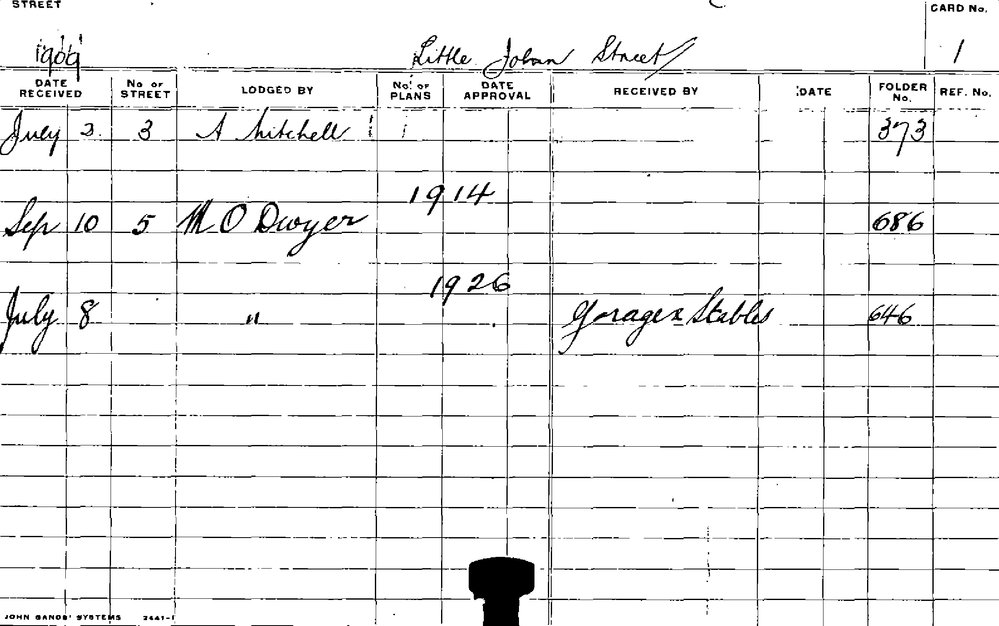 STREET
CARD No.
1909
Little Johan Street
1
DATE RECEIVED No OF STREET LODGED BY No. OF PLANS DATE APPROVAL RECEIVED BY DATE FOLDER No. REF. No.
July 2. 3 A Mitchell 373
1914
Sep 10 5 M O Dwyer 686
1926
July 8 " Garage & Stables 646
JOHN SANDS' SYSTEMS 2441-1